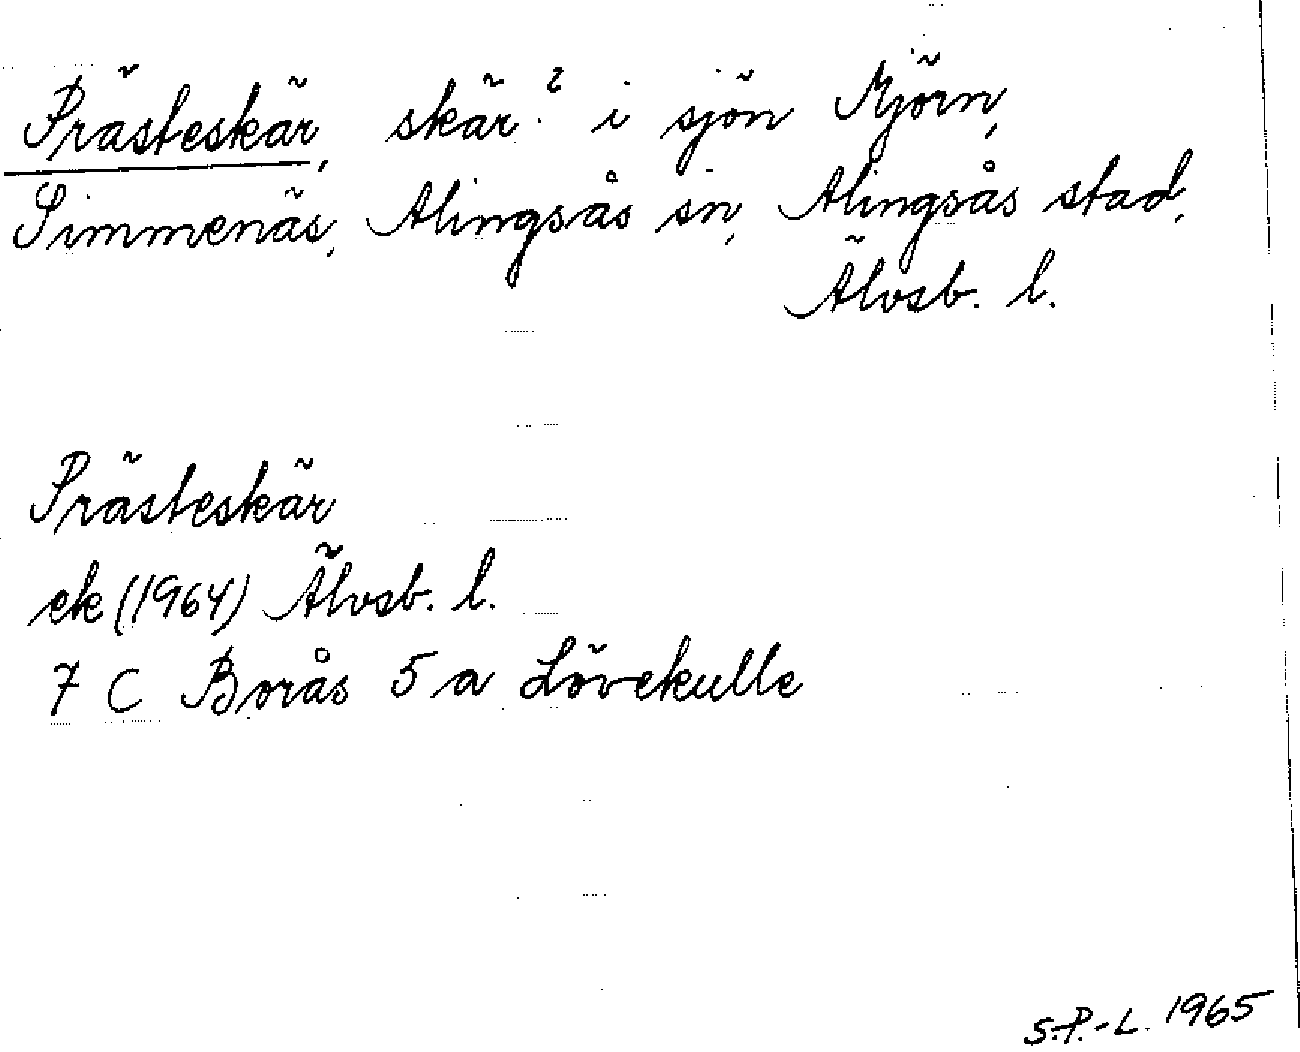 Prästeskär, skär? i sjön Mjörn,
Simmenäs, Alingsås sn, Alingsås stad,
Älvsb. l.
Prästeskär
ek (1964) Älvsb. l.
7 C Borås 5 a Lövekulle
S.P.-L. 1965